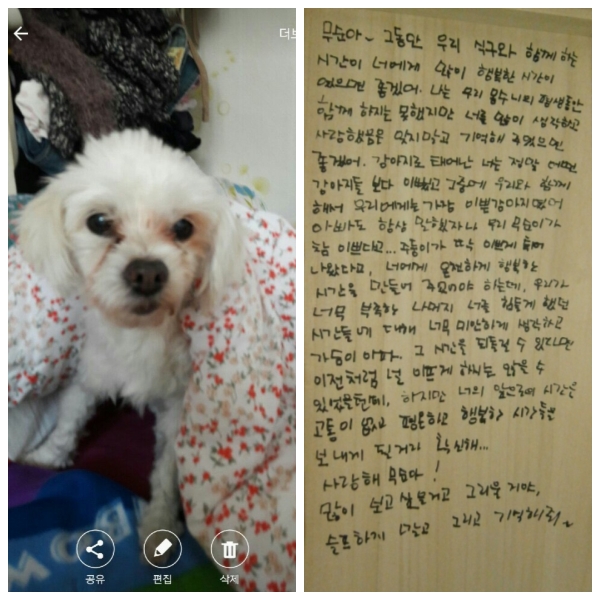 더보
공유
편집
삭제
무순아~ 그동안 우리 식구와 함께 하는
시간이 너에게 많이 행복한 시간이
였으면 좋겠어. 나는 우리 몽수니의 평생동안
함께 하지는 못했지만 너를 많이 생각하고
사랑했음은 잊지말고 기억해 주었으면
좋겠어. 강아지로 태어난 너는 정말 어떤
강아지들 보다 이뻤고 그중에 우리와 함께
해서 우리에게는 가장 이쁜강아지였어
아빠가도 항상 말했자나 우리 무순이가
참 이쁘다고... 주둥이가 또 이쁘게 튀어
나왔다고, 너에게 온전하게 행복한
시간을 만들어 주었어야 하는데, 우리가
너무 부족한 나머지 너를 힘들게 했던
시간들에 대해 너무 미안하게 생각하고
가슴이 아파.. 그 시간을 되돌릴 수 있다면
이전처럼 널 이쁘게 하지는 않을 수
있었을텐데, 하지만 너의 앞으로의 시간은
고통이 없고 평온하고 행복한 시간들을
보내게 될거라 확신해...
사랑해 무순아 !
많이 보고싶을거고 그리울거야,
슬프하게 말고 그리고 기억해줘~